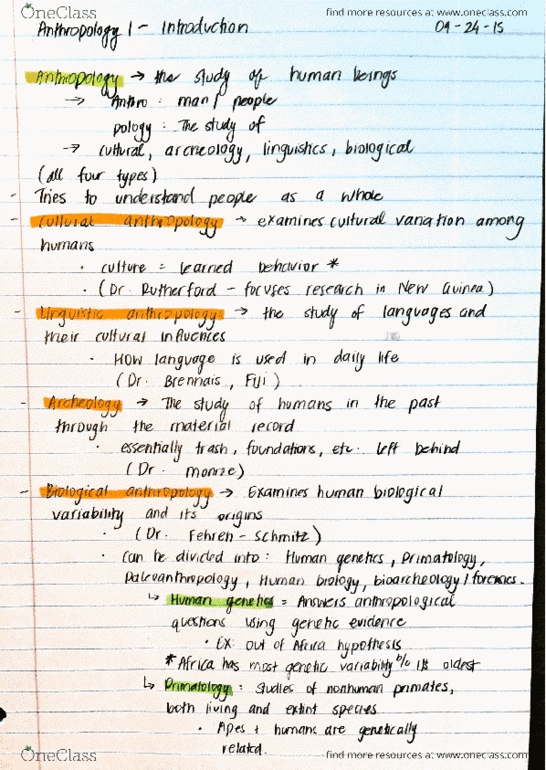 OneClass
find more resources at www.oneclass.com
Anthropology 1 - Introduction 09-24-15
Anthropology → the study of human beings
→ Anthro : man / people
pology : The study of
→ cultural, archeology, linguistics, biological
(all four types)
- Tries to understand people as a whole
- Cultural anthropology → examines cultural variation among
humans
• culture = learned behavior *
• (Dr. Rutherford - focuses research in New Guinea)
- Linguistic anthropology → the study of languages and
their cultural influences
• How language is used in daily life
(Dr. Brennais, Fiji)
- Archeology → The study of humans in the past
through the material record
• essentially trash, foundations, etc. left behind
(Dr. Monroe)
- Biological anthropology → Examines human biological
variability and its origins
• (Dr. Fehren-Schmitz)
• Can be divided into : Human genetics, Primatology,
Paleoanthropology, Human biology, bioarcheology / forensics.
↳ Human genetics = Answers anthropological
questions using genetic evidence
• EX: out of Africa hypothesis
* Africa has most genetic variability b/c its oldest
↳ Primatology : studies of nonhuman primates,
both living and extint species
• Apes + humans are genetically
related.
OneClass
find more resources at www.oneclass.com